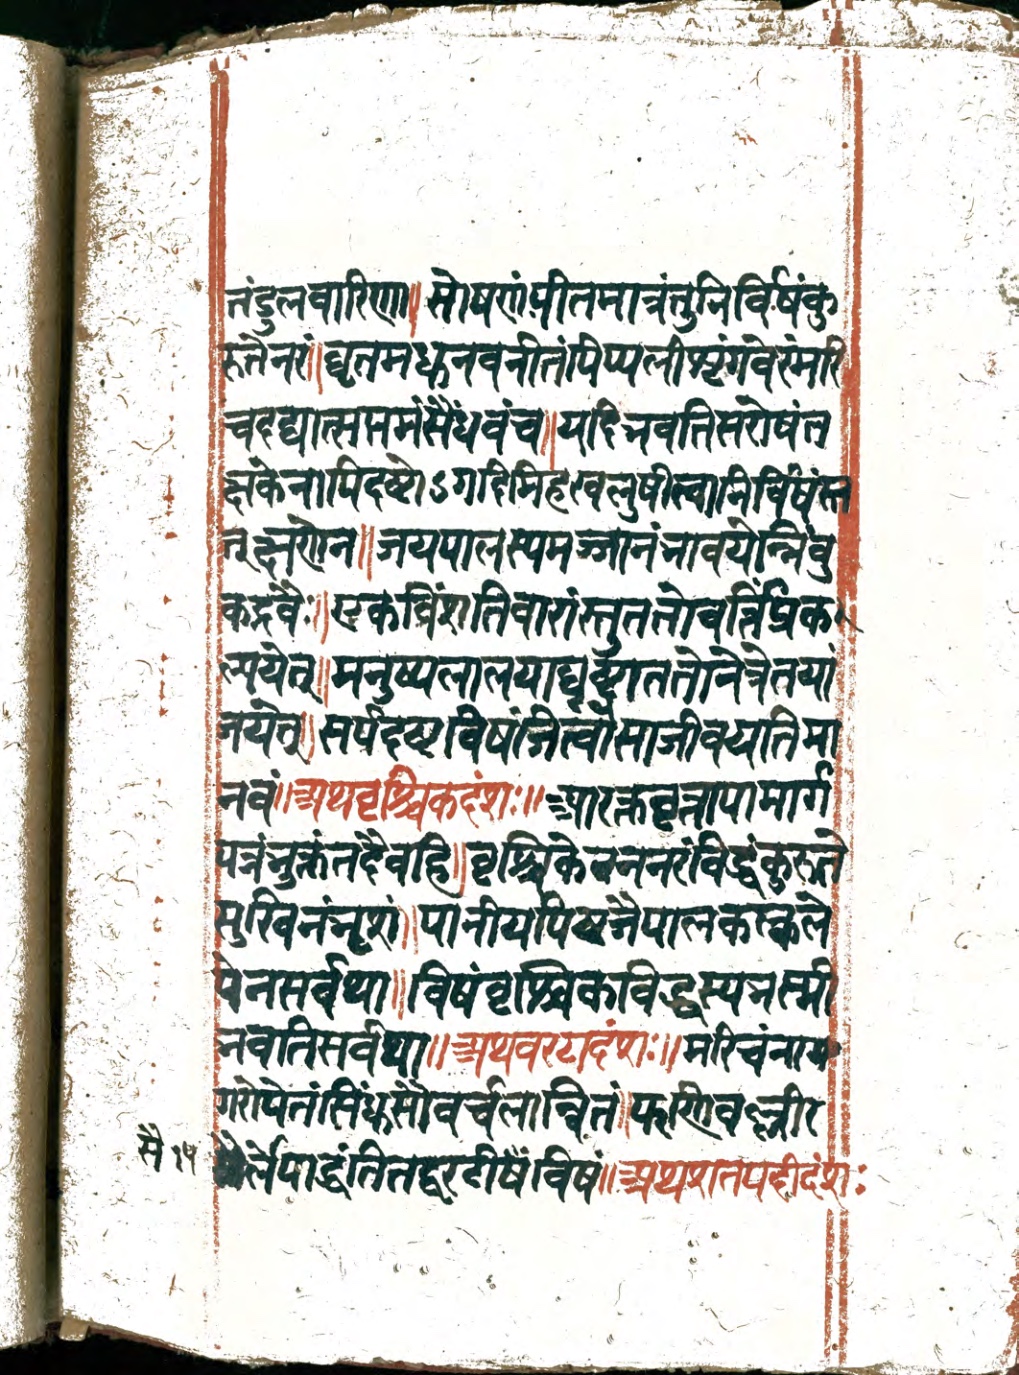 तंडुलवारिणा॥ सोषणंपीतमात्रंतुनिर्विषंकु
रुतेनरं॥ घृतमधुनवनीतंपिप्पलीशृंगवेरंमरि
चदद्यात्सप्तमंसैंधवंच॥ यदिभवतिसरोषंत
क्षकेनापिदष्टोऽगदमिहखलुपीत्वानिर्विषंस्त
त्क्षणेन॥ जयपालस्यमज्जानंभावयेन्निंबु
कद्रवैः॥ एकविंशतिवारांस्तुततोवर्तिंप्रक
ल्पयेत्॥ मनुष्यलालयाघृष्टाततोनेत्रेतयां
जयेत्॥ सर्पदष्टविषंजित्वासाजीवयतिमा
नवं॥ अथवृश्चिकदंशः॥ आरक्तवृत्तापामार्ग
पत्रंभुक्तंतदैवहि॥ वृश्चिकेननरंविद्धंकुरुते
सुखिनंभृशं॥ पानीयपिष्टजैपालकल्कले
पेनसर्वथा॥ विषंवृश्चिकविद्धस्यभस्मी
भवतिसर्वथा॥ अथवरटादंशः॥ मरिचंनाग
रोपेतंसिंधुसौवर्चलान्वितं॥ फणिवल्लीर
सैर्लेपाद्धंतितद्वरटीविषं॥ अथशतपदीदंशः
सै १५